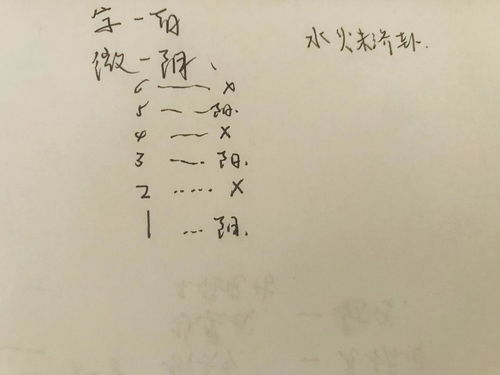 字一阳
微一阴、
6 —— x
5 — —阳.
4 —— x
3 —— 阳.
2 ..... x
1 ... 阳.
水火未济卦.